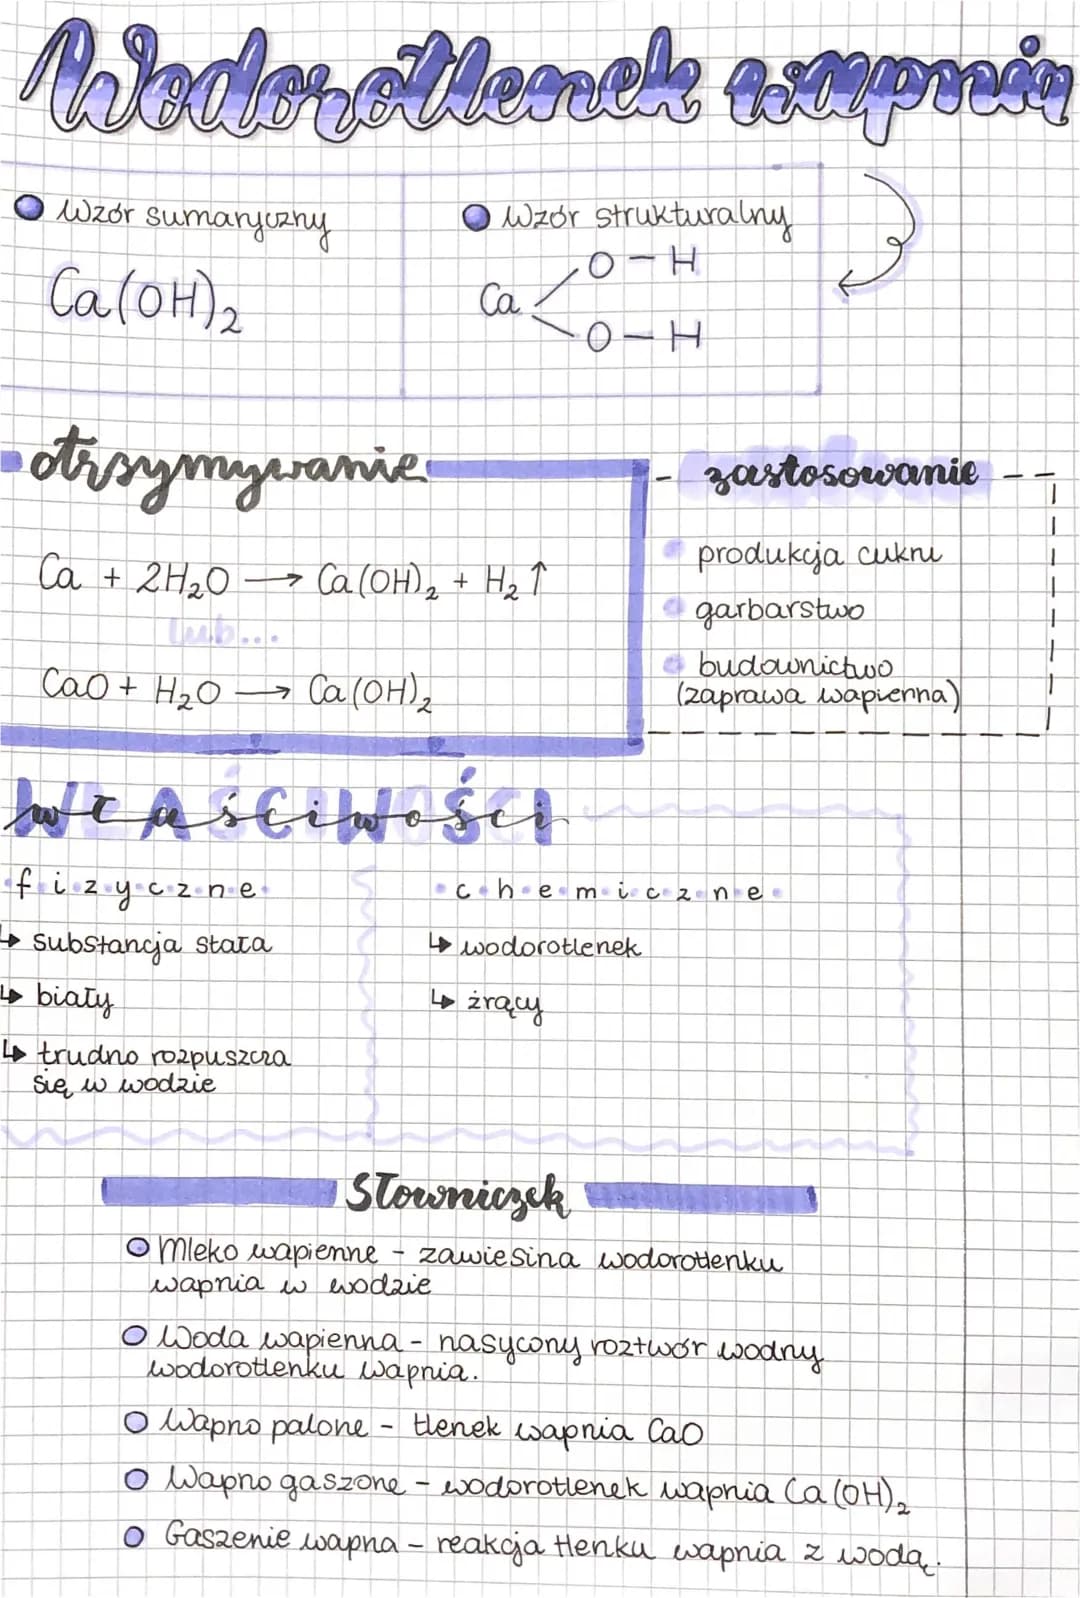 Wodorotlenek wapnia
Wzór sumaryczny
Ca(OH)₂
Wzór strukturalny
O — H
Ca
O — H
otrzymywanie
Ca + 2H₂O → Ca(OH)₂ + H₂↑
lub...
CaO + H₂O → Ca(OH)₂
zastosowanie
produkcja cukru
garbarstwo
budownictwo
(zaprawa wapienna)
WŁAŚCIWOŚCI
właściwości
f·i·z·y·c·z·n·e
↳ substancja stała
↳ biały
↳ trudno rozpuszcza
się w wodzie
c·h·e·m·i·c·z·n·e
↳ wodorotlenek
↳ żrący
Słowniczek
Mleko wapienne - zawiesina wodorotlenku
wapnia w wodzie
Woda wapienna - nasycony roztwór wodny
wodorotlenku wapnia.
Wapno palone - tlenek wapnia CaO
Wapno gaszone - wodorotlenek wapnia Ca(OH)₂
Gaszenie wapna - reakcja tlenku wapnia z wodą.